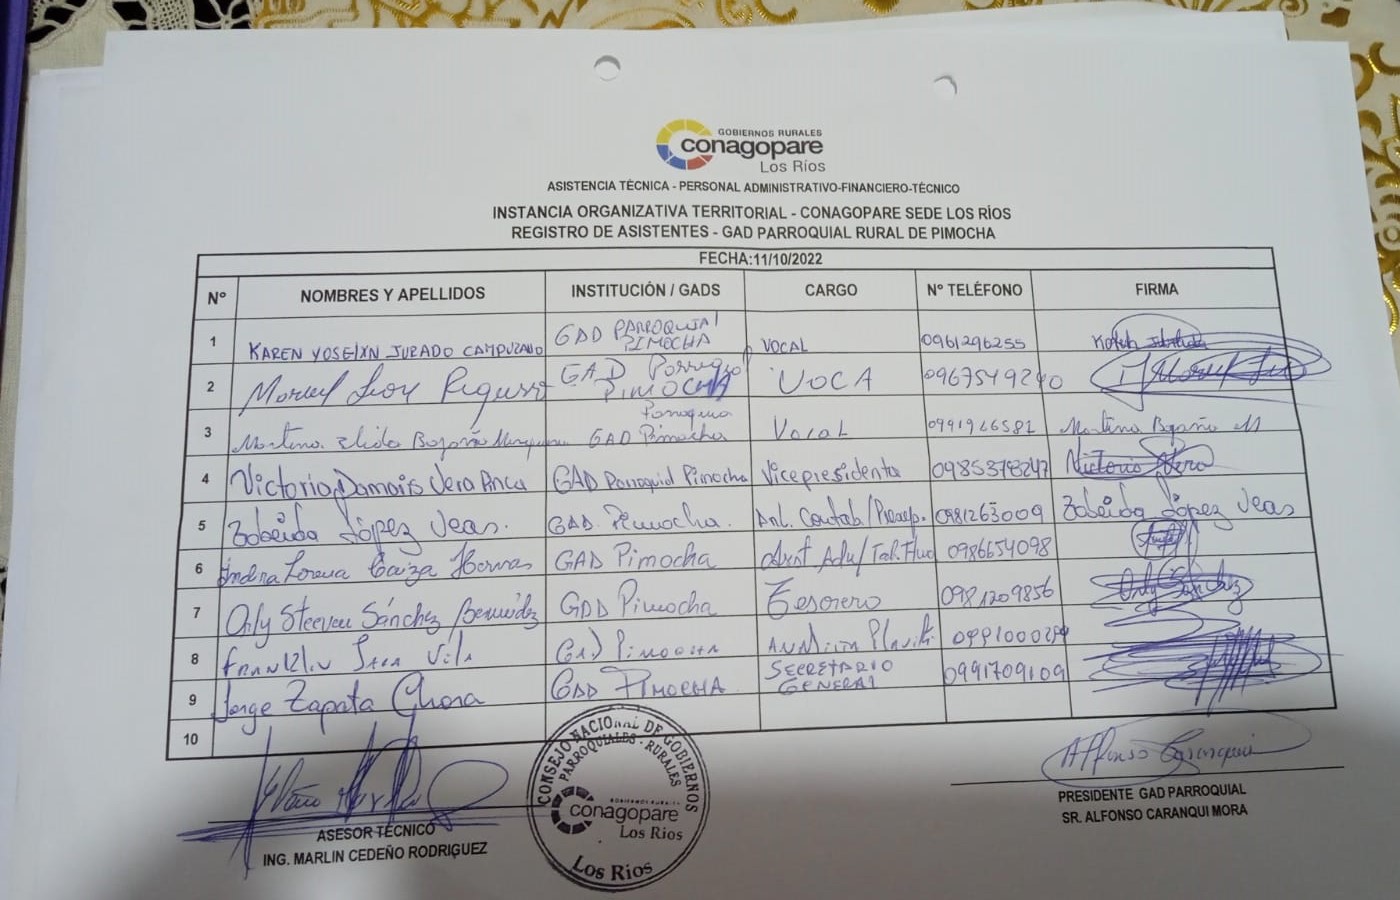 GOBIERNOS RURALES
conagopare
Los Ríos
ASISTENCIA TÉCNICA - PERSONAL ADMINISTRATIVO-FINANCIERO-TÉCNICO
INSTANCIA ORGANIZATIVA TERRITORIAL - CONAGOPARE SEDE LOS RÍOS
REGISTRO DE ASISTENTES - GAD PARROQUIAL RURAL DE PIMOCHA
FECHA:11/10/2022
Nº NOMBRES Y APELLIDOS INSTITUCIÓN / GADS CARGO Nº TELÉFONO FIRMA
1 KAREN YOSELYN JURADO CAMPUZANO GAD PARROQUIAL PIMOCHA VOCAL 0961296255
2 GAD PIMOCHA VOCA
3 GAD Pimocha Vocal Martina
4 Victoria Damaris Vera Anca GAD Parroquial Pimocha Vicepresidenta 0985378247 Victoria Vera
5 Zobeida López Veas. GAD. Pimocha. 0981263009 Zobeida López Veas
6 Lorena Caiza GAD Pimocha 0986654098
7 Orly Steeven Sánchez Bermúdez GAD Pimocha Tesorero 0981209856 Orly Sánchez
8 GAD PIMOCHA
9 Jorge Zapata GAD PIMOCHA SECRETARIO GENERAL 0991709109
10
ASESOR TÉCNICO
ING. MARLIN CEDEÑO RODRIGUEZ
CONSEJO NACIONAL DE GOBIERNOS
PARROQUIALES - RURALES
GOBIERNOS RURALES
conagopare
Los Ríos
Los Ríos
Alfonso Caranqui
PRESIDENTE GAD PARROQUIAL
SR. ALFONSO CARANQUI MORA